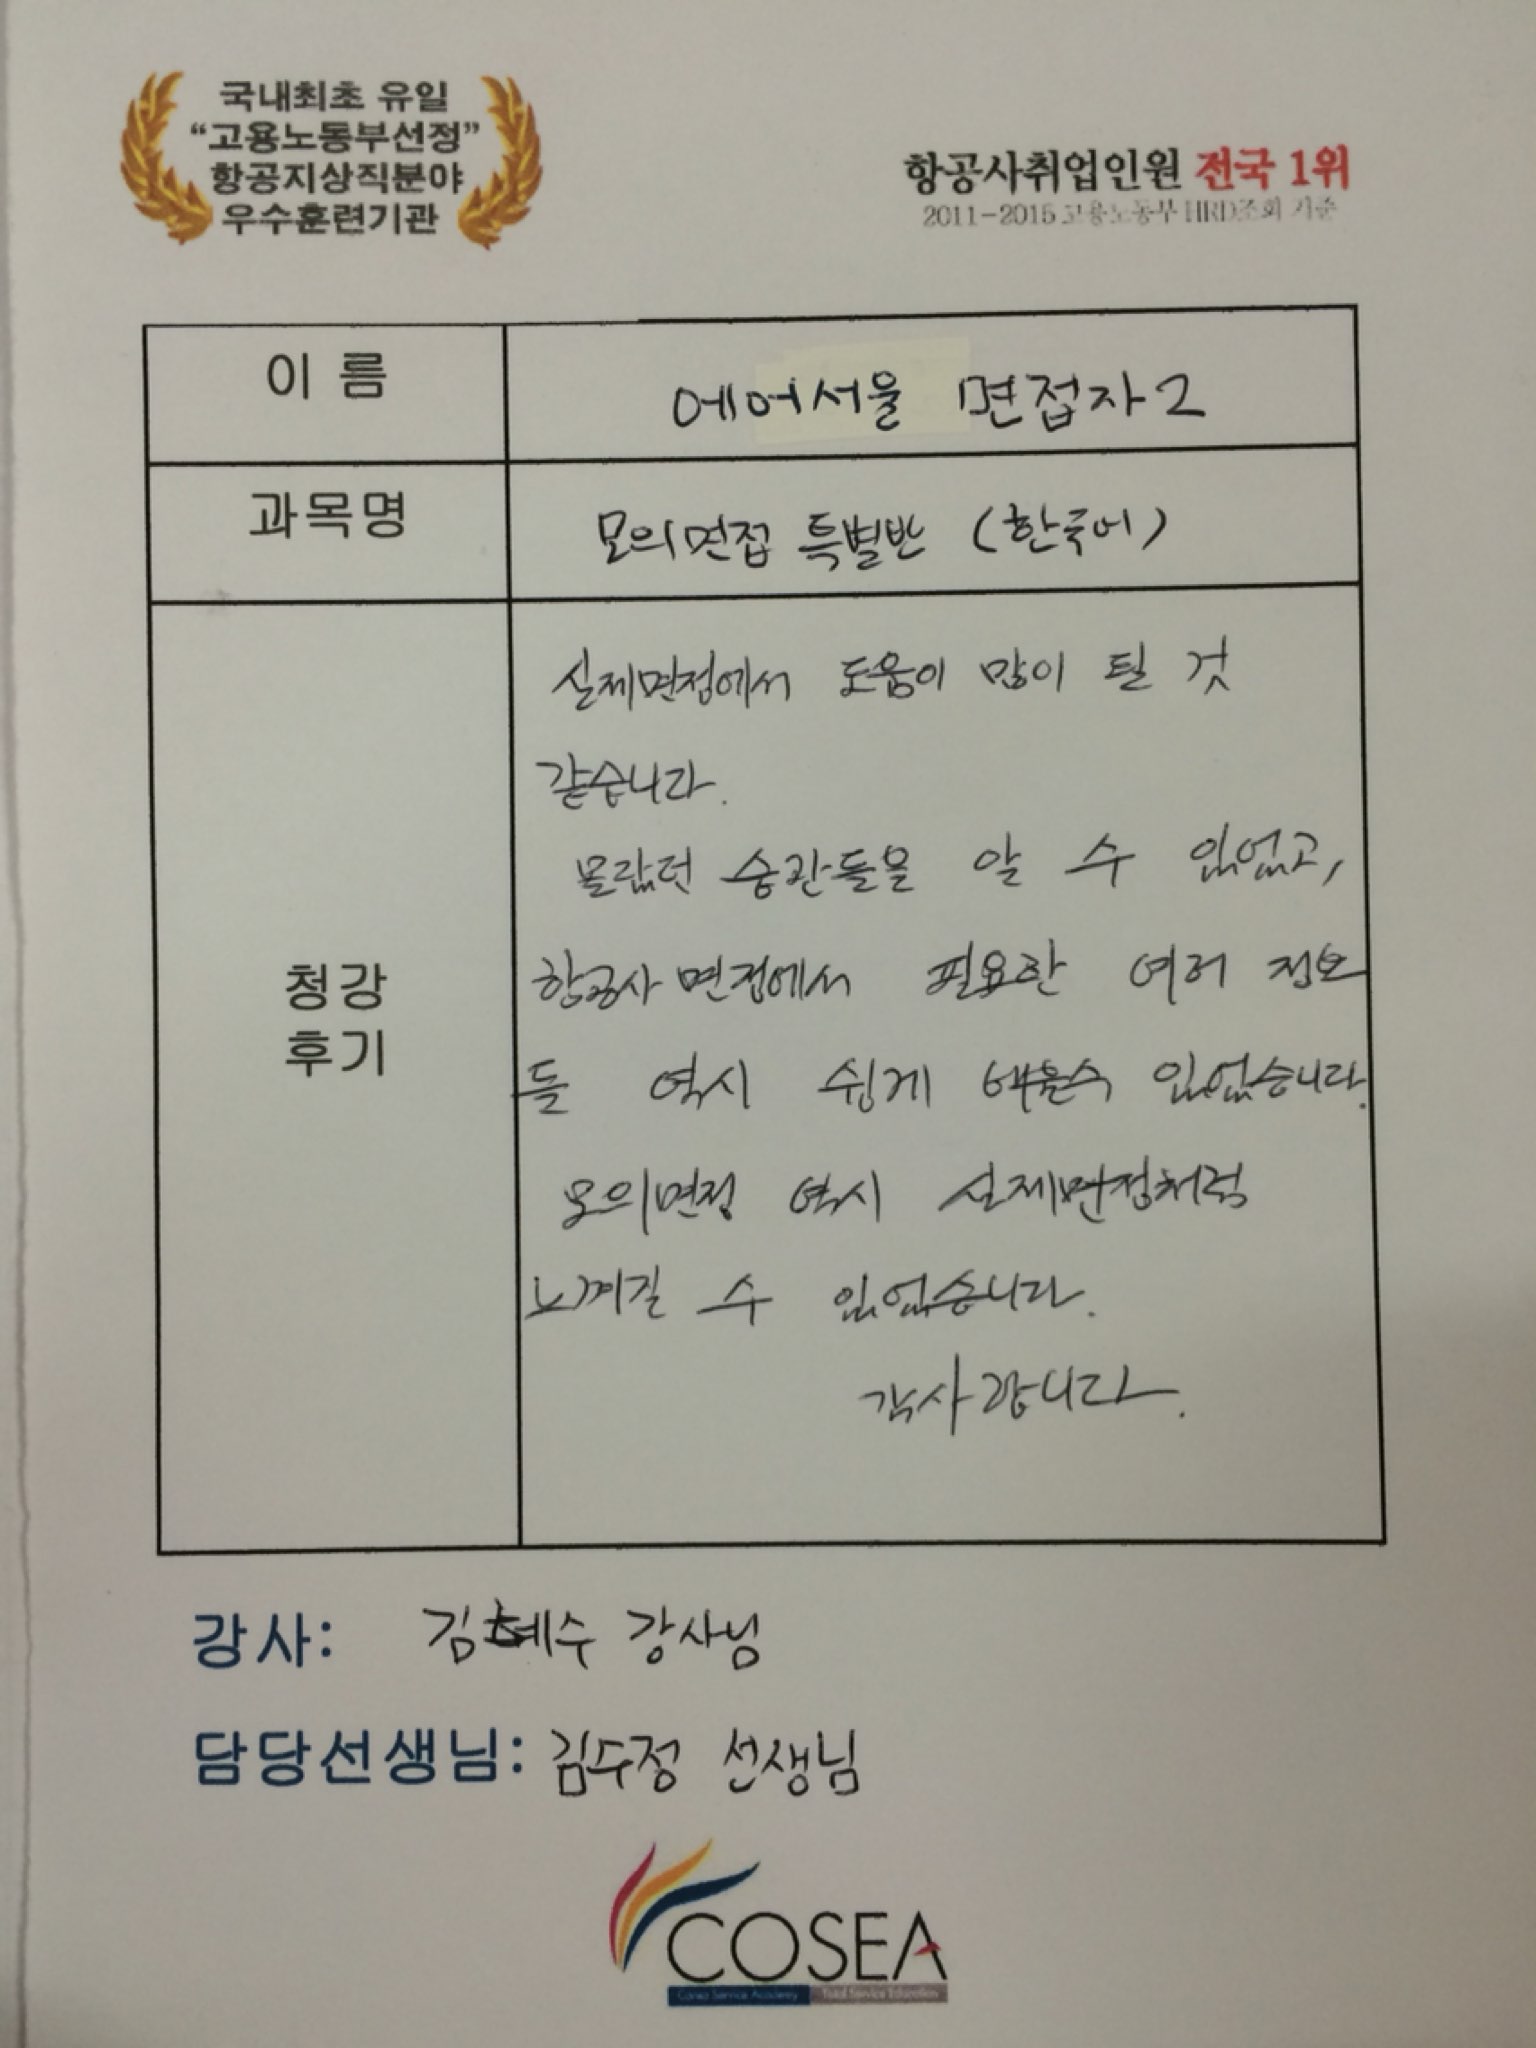 국내최초 유일
“고용노동부선정”
항공지상직분야
우수훈련기관
항공사취업인원 전국 1위
2011-2015 고용노동부 HRD조회 기준
이 름
에어서울 면접자2
과목명
모의면접 특별반 (한국어)
청강
후기
실제면접에서 도움이 많이 될 것
같습니다.
몰랐던 습관들을 알 수 있었고,
항공사 면접에서 필요한 여러 정보
들 역시 쉽게 배울수 있었습니다.
모의면접 역시 실제면접처럼
느껴질 수 있었습니다.
감사합니다.
강사: 김혜수 강사님
담당선생님: 김수정 선생님
COSEA
Cosea Service Academy Total Service Education